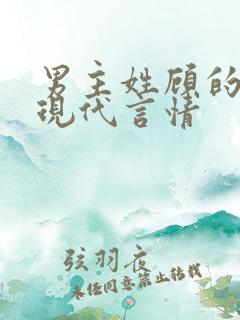 男主姓顾的
现代言情
弦羽夜
未经同意禁止转载